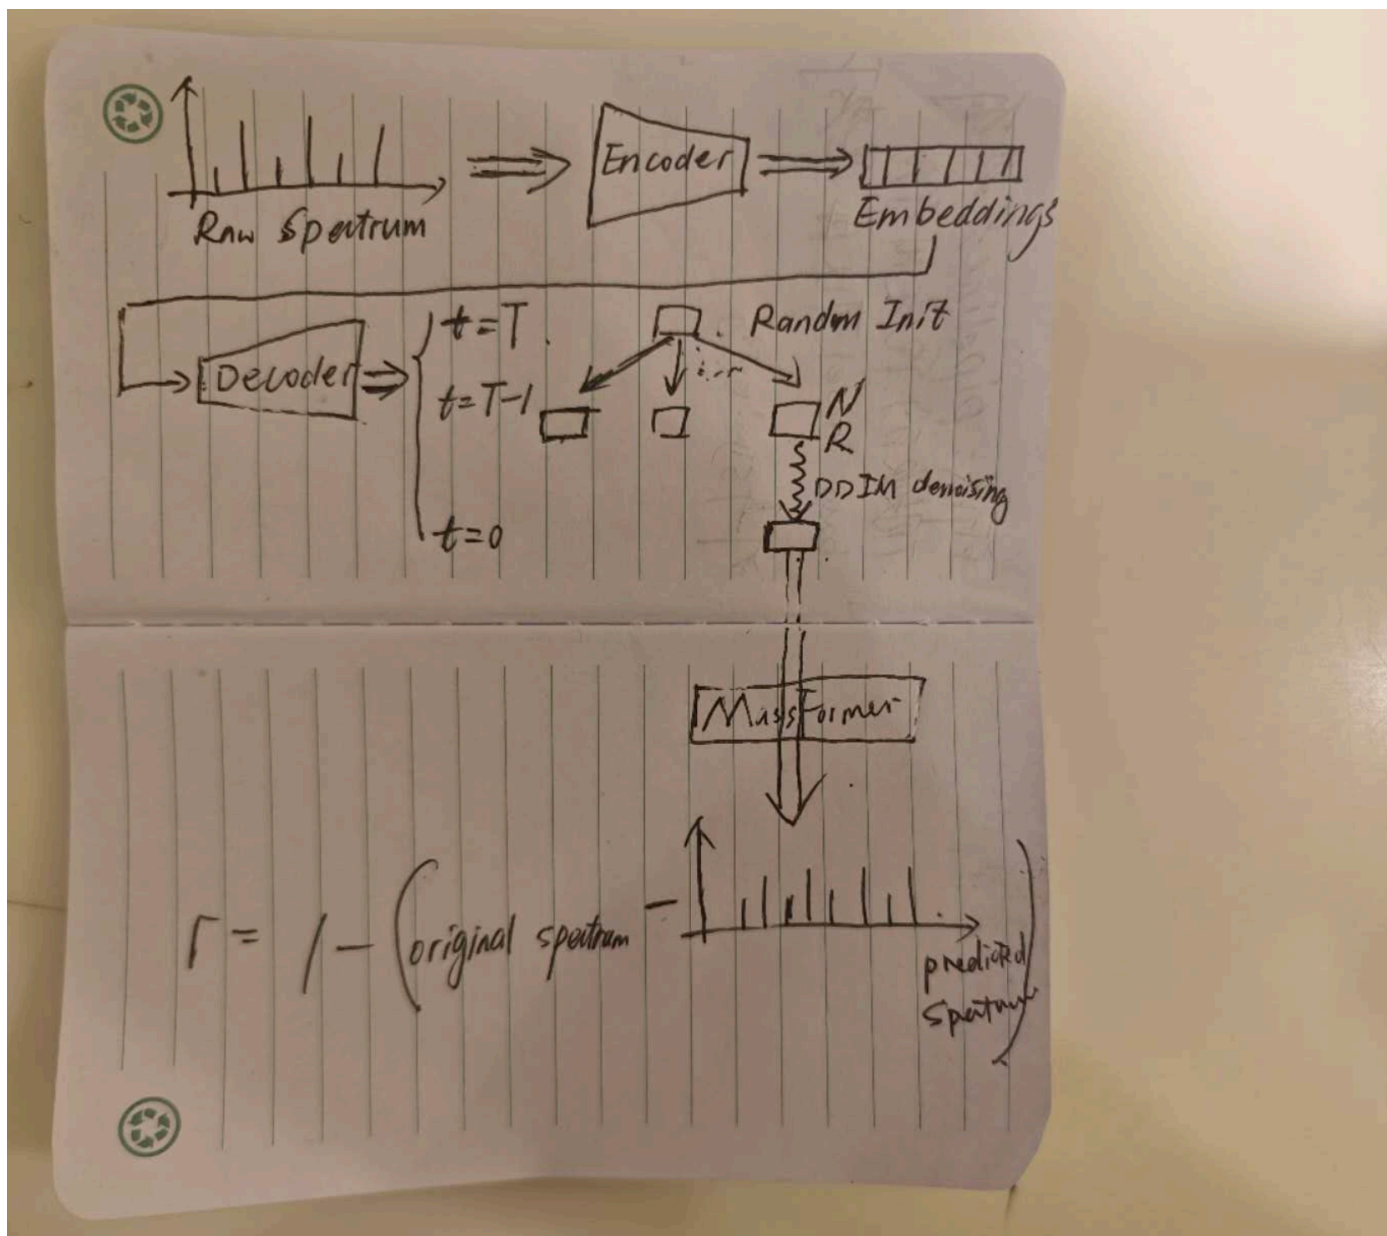 Raw Spectrum
Encoder
Embeddings
Decoder
t=T
Random Init
t=T-1
N
R
DDIM denoising
t=0
MassFormer
r = 1 - (original spectrum - predicted spectrum)